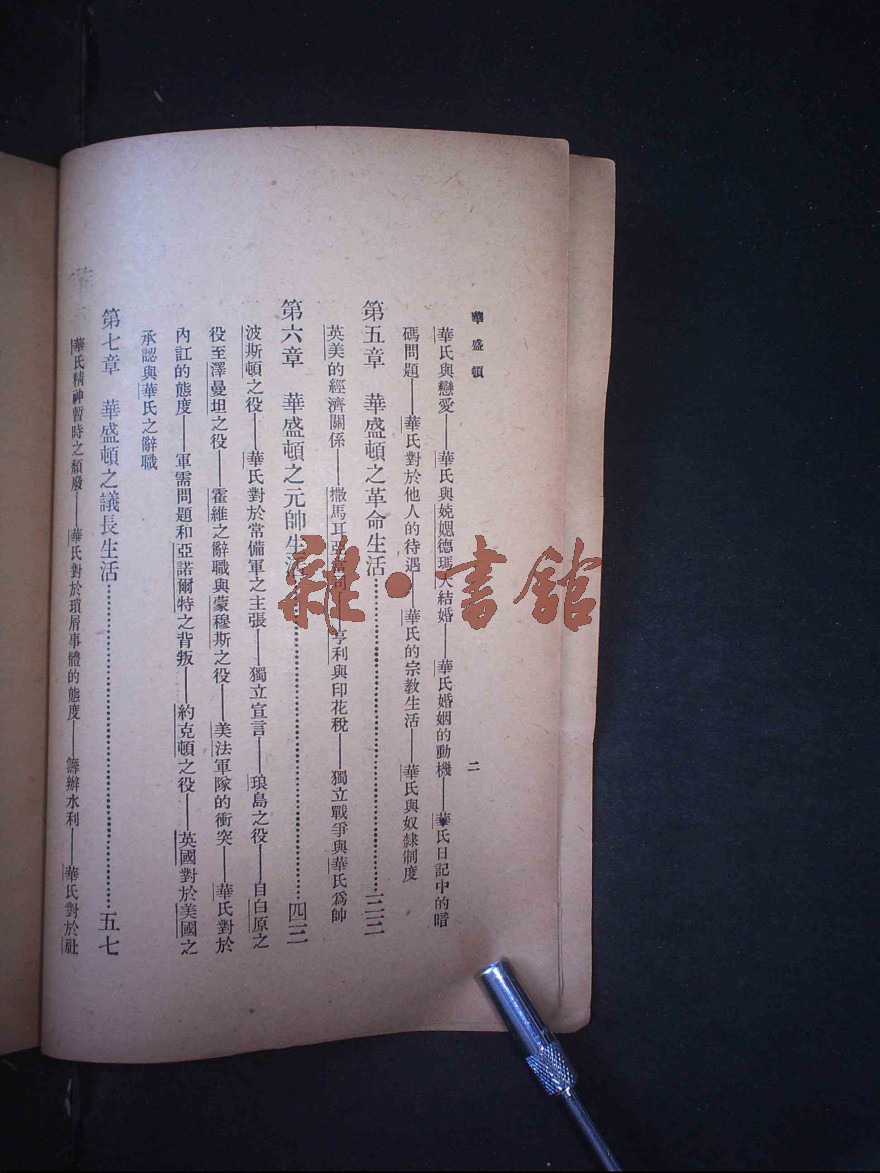 華盛頓
二
華氏與戀愛——華氏與妴媤德瑪大結婚——華氏婚姻的動機——華氏日記中的暗
碼問題——華氏對於他人的待遇——華氏的宗教生活——華氏與奴隸制度
第五章 華盛頓之革命生活……三三
英美的經濟關係——撒馬耳亞當司——亨利與印花稅——獨立戰爭與華氏爲帥
第六章 華盛頓之元帥生活……四三
波斯頓之役——華氏對於常備軍之主張——獨立宣言——琅島之役——自白原之
役至澤曼坦之役——霍維之辭職與蒙穆斯之役——美法軍隊的衝突——華氏對於
內訌的態度——軍需問題和亞諾爾特之背叛——約克頓之役——英國對於美國之
承認與華氏之辭職
第七章 華盛頓之議長生活……五七
華氏精神暫時之頹廢——華氏對於瑣屑事體的態度——籌辦水利——華氏對於社
雜·書館